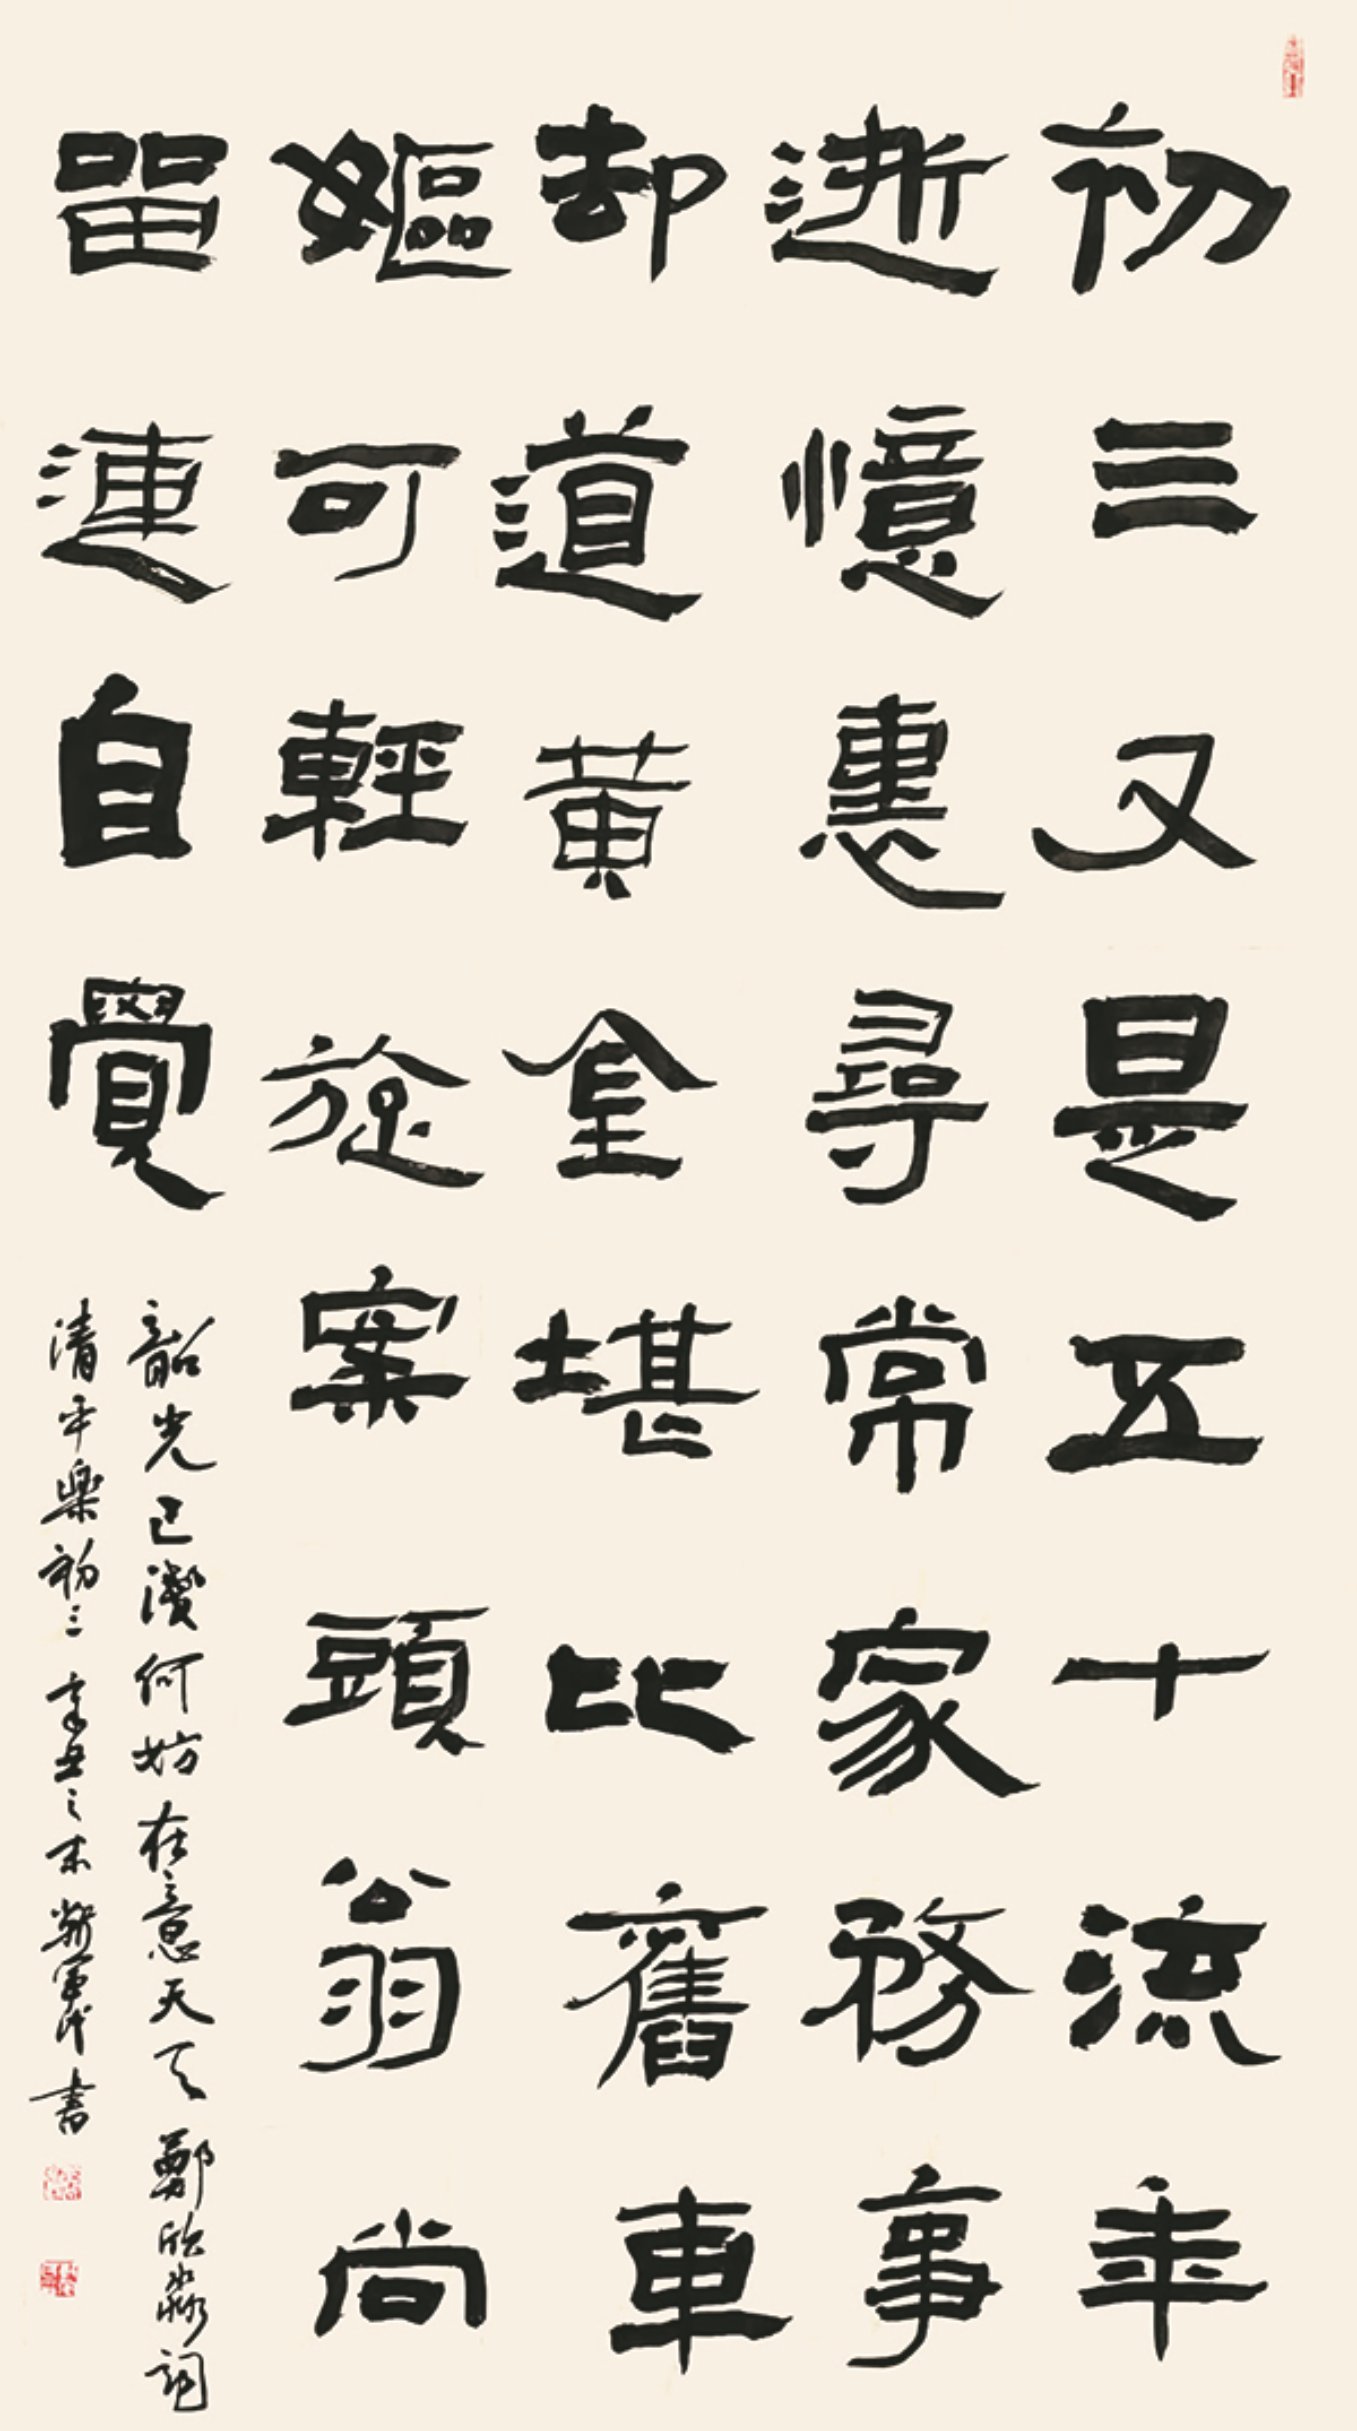 初三又是五十流年
逝憶裏尋常家務事
却道黃金堪比舊車
嫗可輕旋案頭翁尚
留連自覺
韶光已瀅何妨在意天天鄭欣淼詞
清平樂初三辛丑之末鄭軍代書